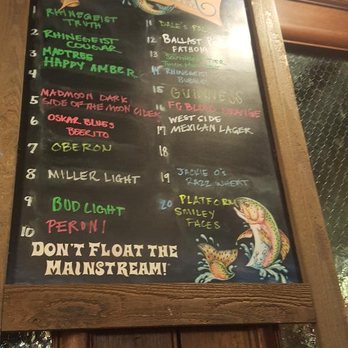 1 RHINEGEIST
TRUTH
2 RHINEGEIST
COUGAR
3 MADTREE
HAPPY AMBER
4
5 MADMOON DARK
SIDE OF THE MOON CIDER
6 OSKAR BLUES
BEERITO
7 OBERON
8 MILLER LIGHT
9 BUD LIGHT
10 PERONI
11 DALE'S
12 BALLAST
FATHOM
13
14 RHINEGEIST
15 GUINNESS
16 FG BLOOD ORANGE
17 WEST SIDE
MEXICAN LAGER
18
19 JACKIE O'S
RAZZ WHEAT
20 PLATFORM
SMILEY
FACES
DON'T FLOAT THE
MAINSTREAM!